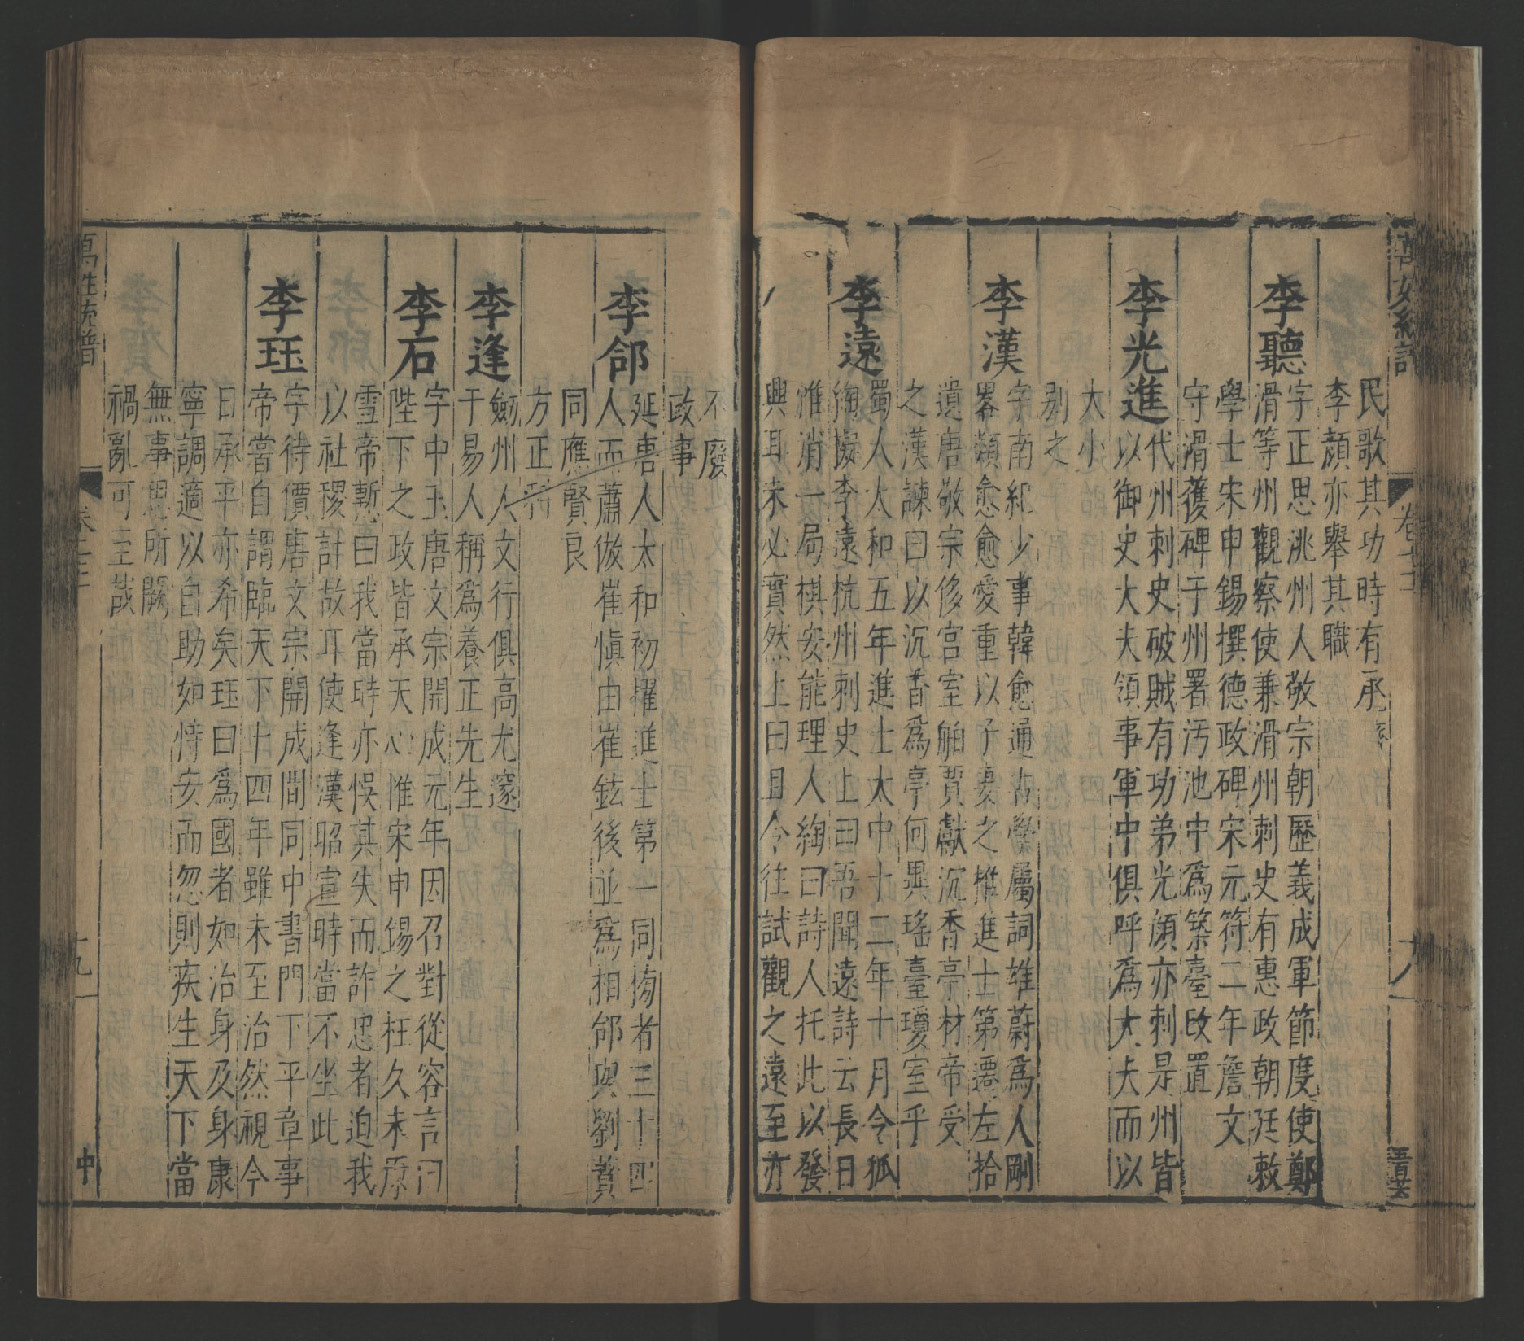 民歌其功時有承
李顔亦舉其職
李聽
字正思洮州人敬宗朝歷義成軍節度使鄭
滑等州觀察使兼滑州刺史有惠政朝廷敕
學士宋申錫撰德政碑宋元符二年詹文
守滑獲碑于州署汚池中爲築臺改置
李光進
代州刺史破賊有功弟光顔亦刺是州皆
以御史大夫領事軍中俱呼爲大夫而以
大小
別之
李漢
字南紀少事韓愈通古學屬詞雄蔚爲人剛
畧類愈愈愛重以子妻之擢進士第遷左拾
遺唐敬宗侈宮室舶賈獻沉香亭材帝受
之漢諫曰以沉香爲亭何異瑤臺瓊室乎
李遠
蜀人太和五年進士太中十二年十月令狐
綯擬李遠杭州刺史上曰吾聞遠詩云長日
惟消一局棋安能理人綯曰詩人托此以發
興耳未必實然上曰且令往試觀之遠至亦
不廢
政事
李郃
延唐人太和初擢進士第一同榜者三十四
人而蕭倣崔慎由崔鉉後並爲相郃與劉蕡
同應賢良
方正科
李逢
劒州人文行俱高尤邃
于易人稱爲養正先生
李石
字中玉唐文宗開成元年因召對從容言曰
陛下之政皆承天心惟宋申錫之枉久未原
雪帝慙曰我當時亦悞其失而詐忠者迫我
以社稷計故耳使逢漢昭宣時當不坐此
李珏
字待價唐文宗開成間同中書門下平章事
帝嘗自謂臨天下十四年雖未至治然視今
日承平亦希矣珏曰爲國者如治身及身康
寧調適以自助如恃安而忽則疾生天下當
無事思所闕
禍亂可至哉
萬姓統譜
卷七十三
十九
中